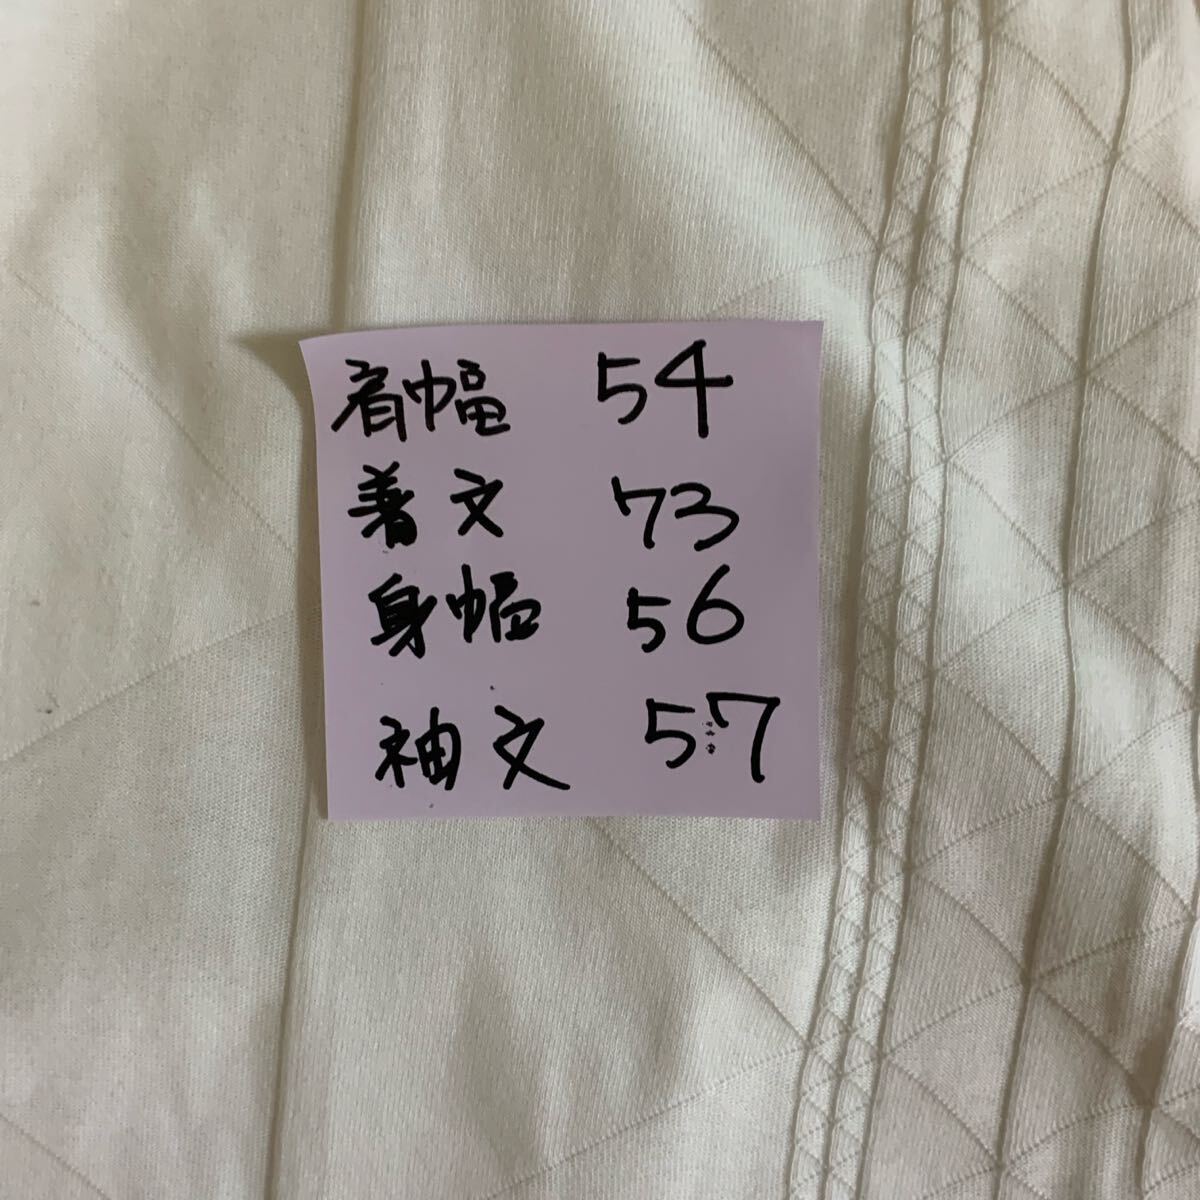 肩幅 54
着文 73
身幅 56
袖文 57